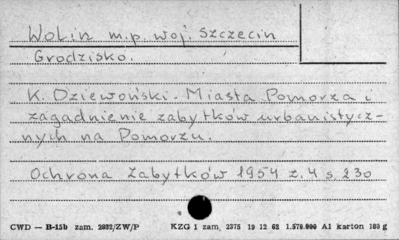 Wolin m.p. woj. Szczecin
Grodzisko.
K. Dziewoński - Miasta Pomorza i
zagadnienie zabytków urbanistycz-
nych na Pomorzu.
Ochrona Zabytków 1954 z. 4 s 230
CWD — B-15b zam. 2832/ZW/P KZG 1 zam. 2375 19 12 62 1.570.000 A1 karton 180 g